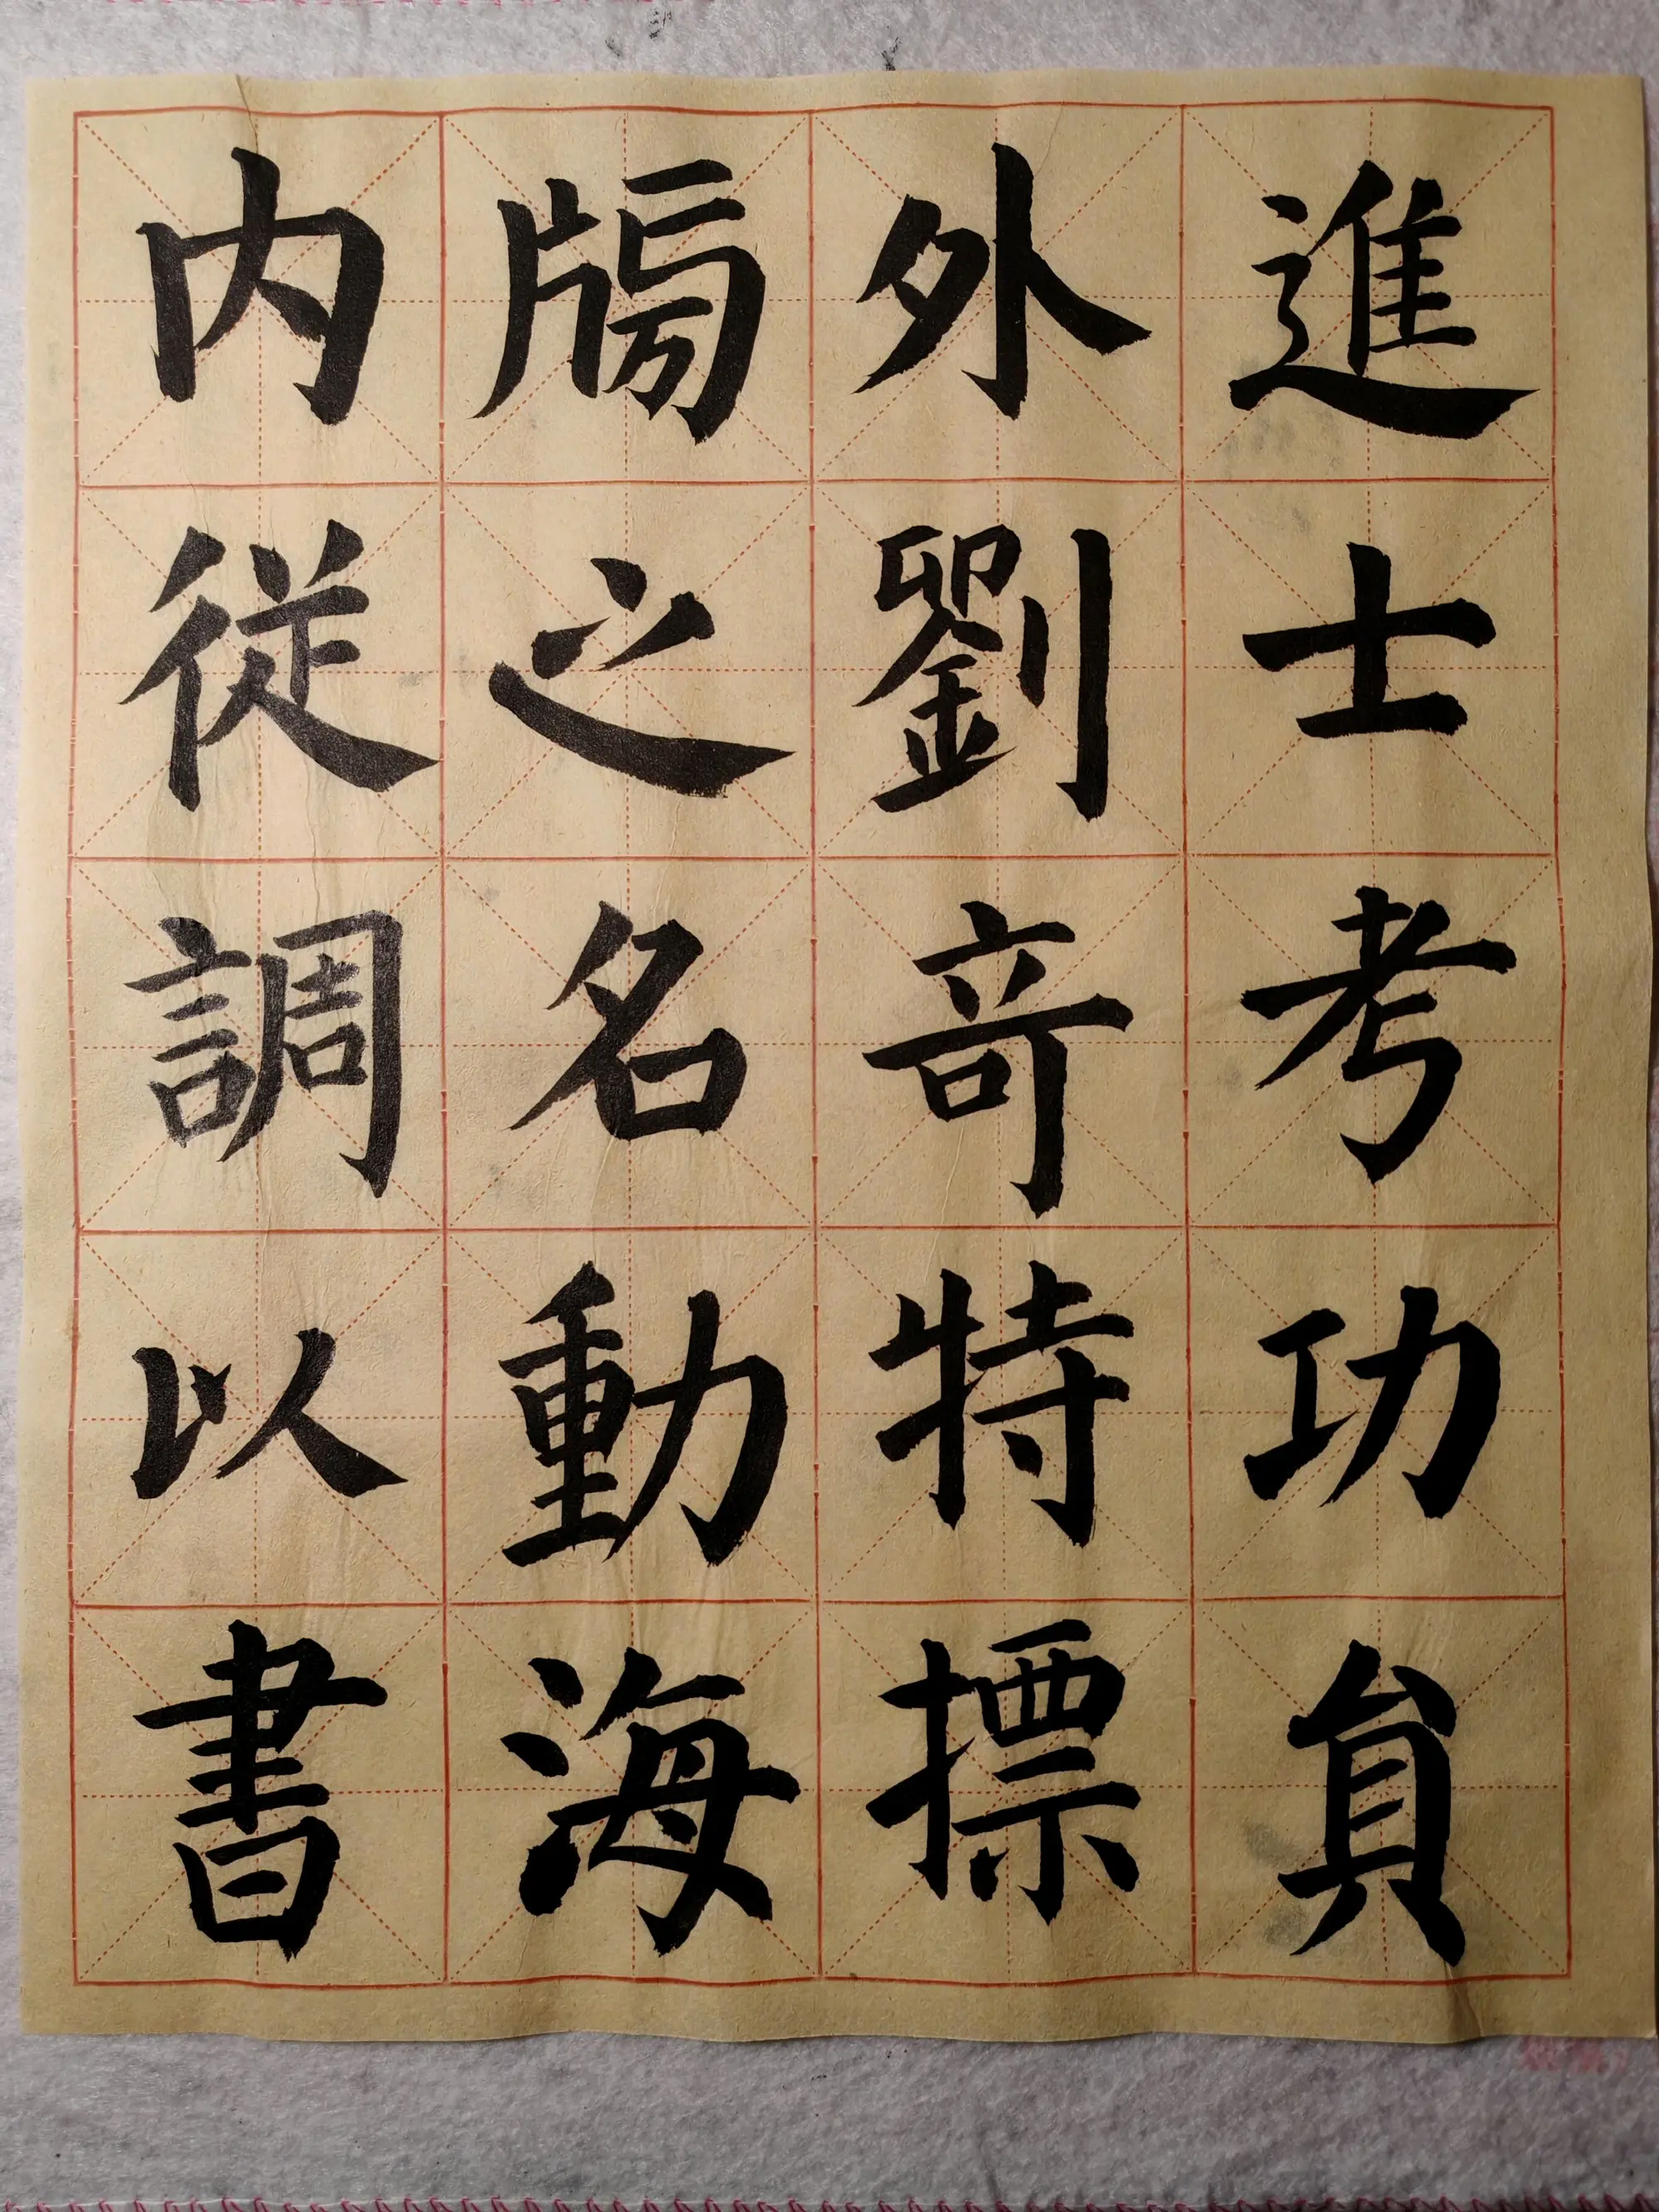 進士考功貟
外劉竒特摽
牓之名動海
内従調以書